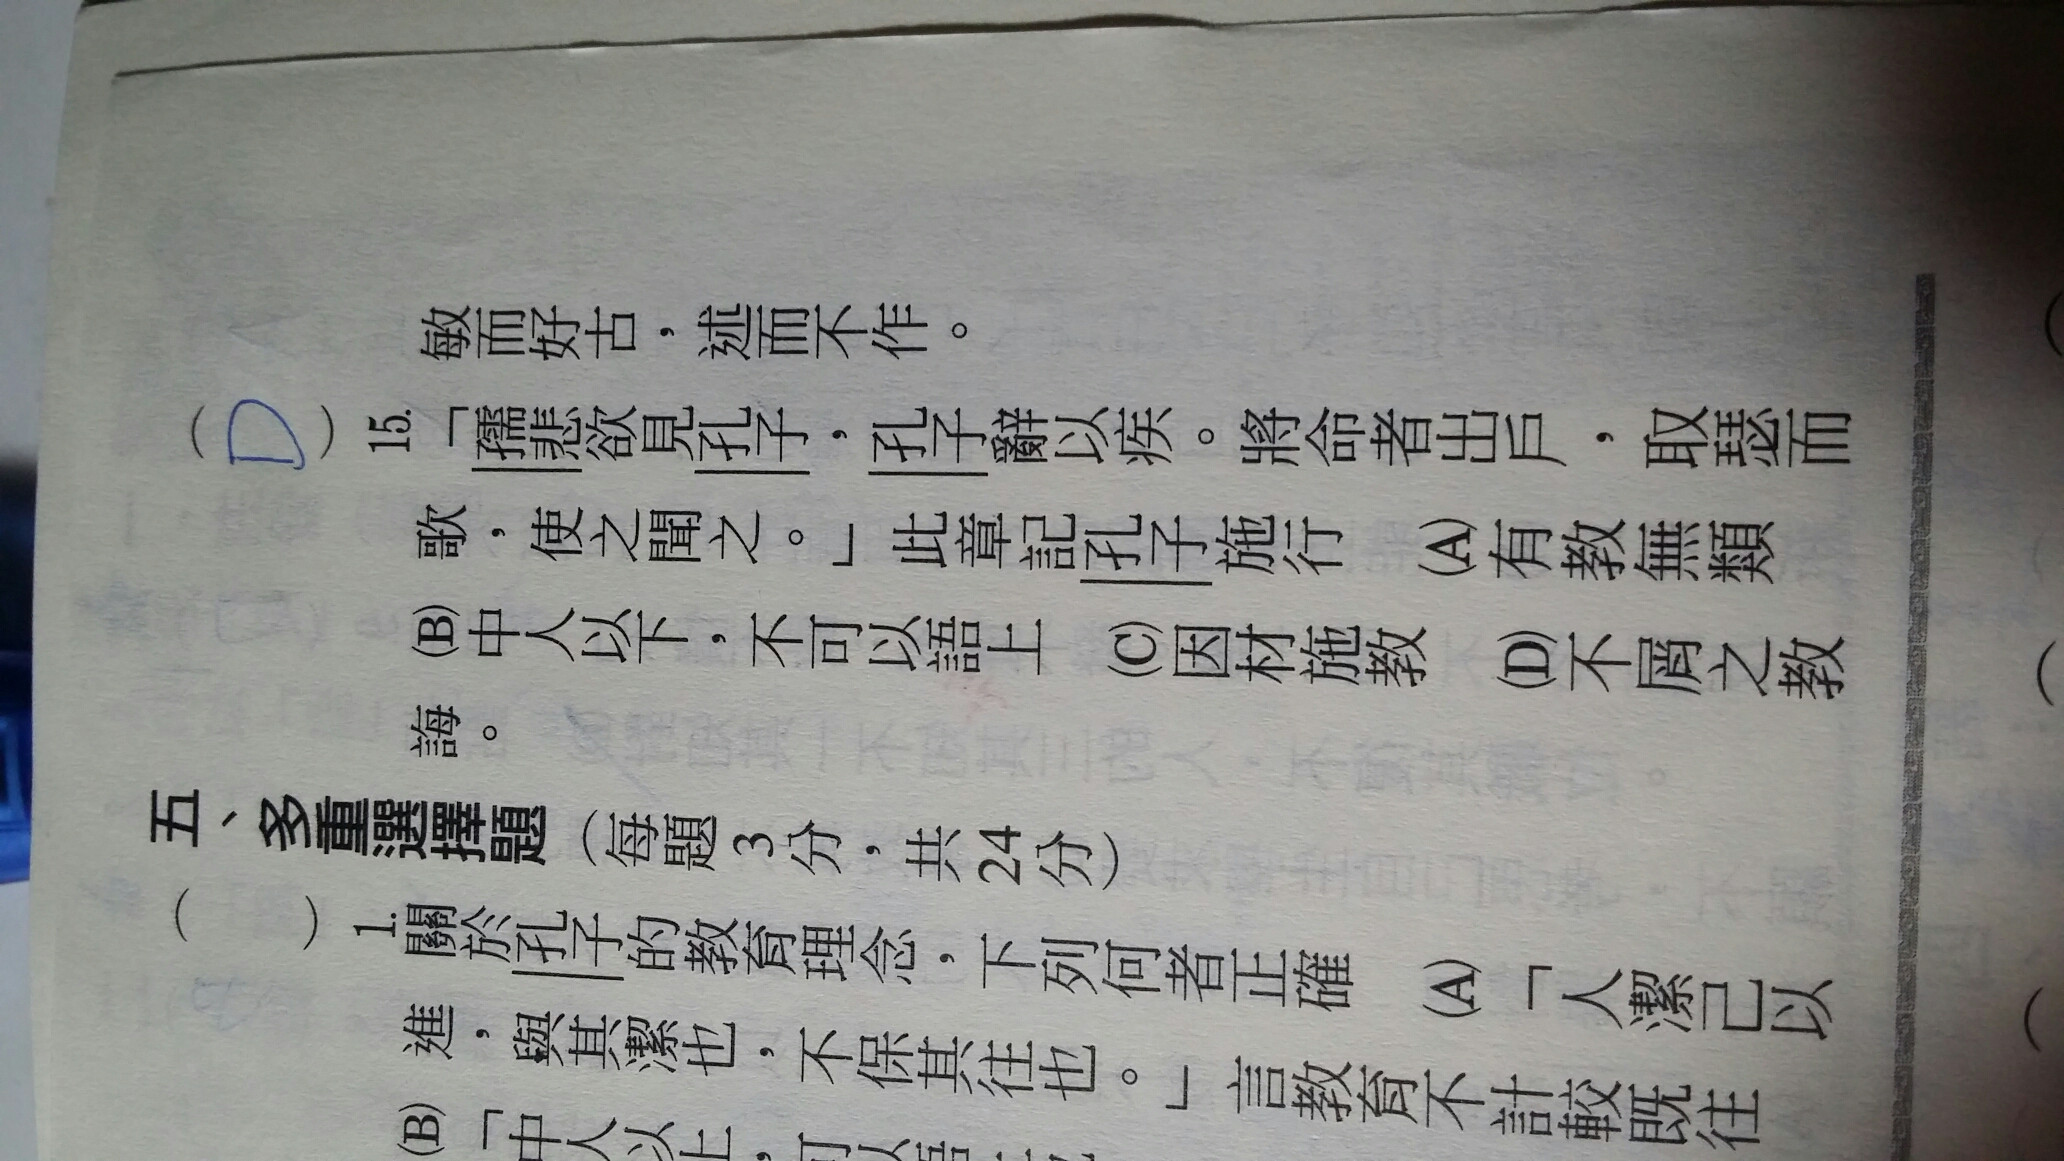 敏而好古，述而不作。
（D）15.「孺悲欲見孔子，孔子辭以疾。將命者出戶，取瑟而
歌，使之聞之。」此章記孔子施行　(A)有教無類
(B)中人以下，不可以語上　(C)因材施教　(D)不屑之教
誨。
五、多重選擇題（每題3分，共24分）
（　）1.關於孔子的教育理念，下列何者正確　(A)「人潔己以
進，與其潔也，不保其往也。」言教育不計較既往
(B)「中人以上，可以語